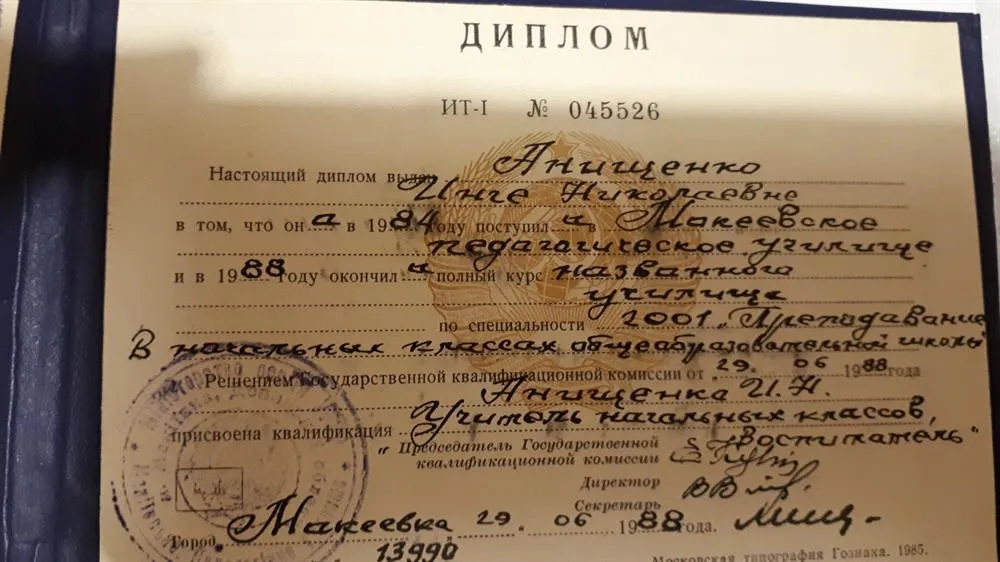 ДИПЛОМ
ИТ-I № 045526
Настоящий диплом выдан Анищенко
Инге Николаевне
в том, что он а в 1984 году поступил а в Макеевское
педагогическое училище
и в 1988 году окончил а полный курс названного
училища
по специальности 2001 „Преподавание
в начальных классах общеобразовательной школы
Решением Государственной квалификационной комиссии от 29. 06 1988 года
Анищенко И.Н.
присвоена квалификация Учитель начальных классов,
„Воспитатель"
Председатель Государственной
квалификационной комиссии
Директор
Секретарь
Город Макеевка 29. 06 1988 года.
13990
Московская типография Гознака. 1985.